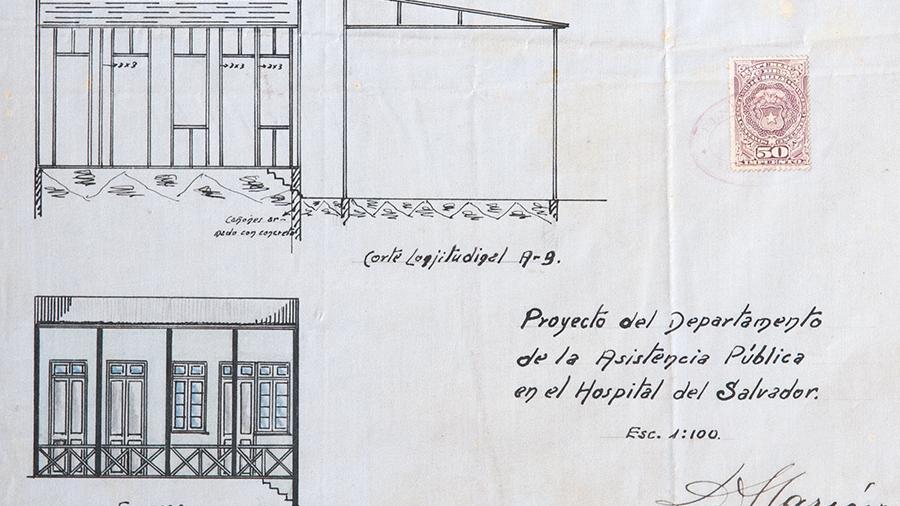 2x3
2x3
2x3
Cañones ar-
mado con concreto
Corte Logjitudigal A-B.
50
IMPUESTO
Proyecto del Departamento
de la Asistencia Pública
en el Hospital del Salvador.
Esc. 1:100.